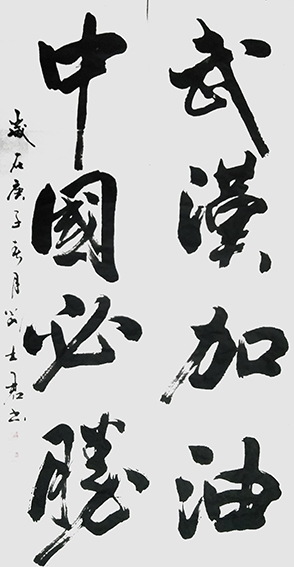 武漢加油
中國必勝
歲在庚子春月劉士君书